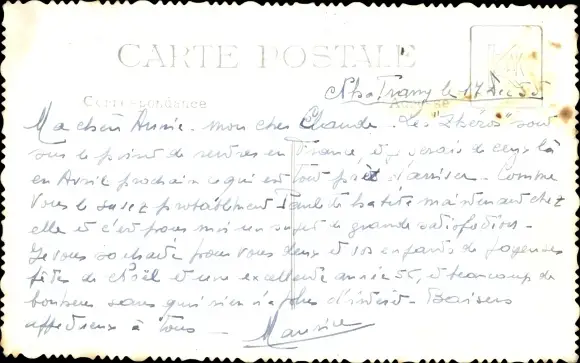 CARTE POSTALE
Nha Trang le 17 Dec 55
Correspondance Adresse
Ma chère Annie - mon cher Claude - Les "Zhéros" sont
sur le point de rentrer en France, et je serais de ceux là
en Avril prochain ce qui est tout prêt d'arriver - Comme
vous le savez probablement habite maintenant chez
elle et c'est pour moi un sujet de grande satisfaction -
Je vous souhaite pour vous deux et vos enfants de joyeuses
fêtes de Noël et une excellente année 56, et beaucoup de
bonheur sans que rien n'a plus d'intérêt - Baisers
affectueux à tous - Maurice